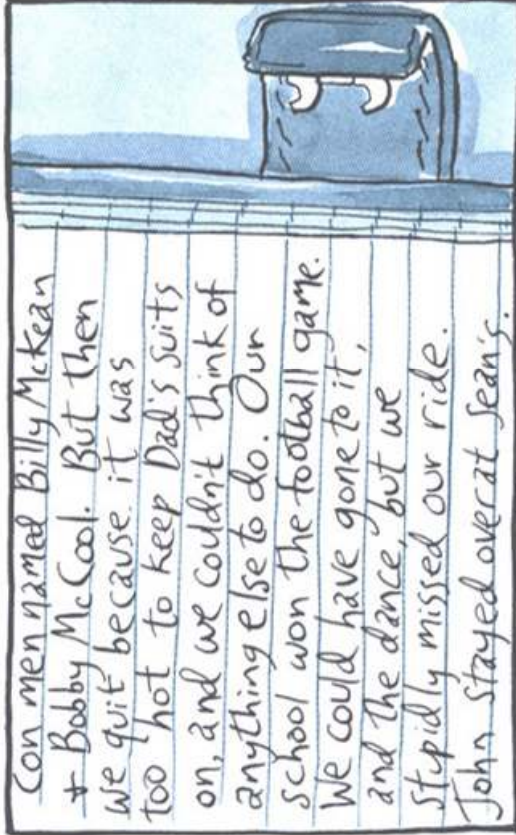 Con men named Billy McKean
+ Bobby McCool. But then
we quit because it was
too hot to keep Dad's suits
on, and we couldn't think of
anything else to do. Our
school won the football game.
We could have gone to it,
and the dance, but we
stupidly missed our ride.
John stayed over at Sean's.